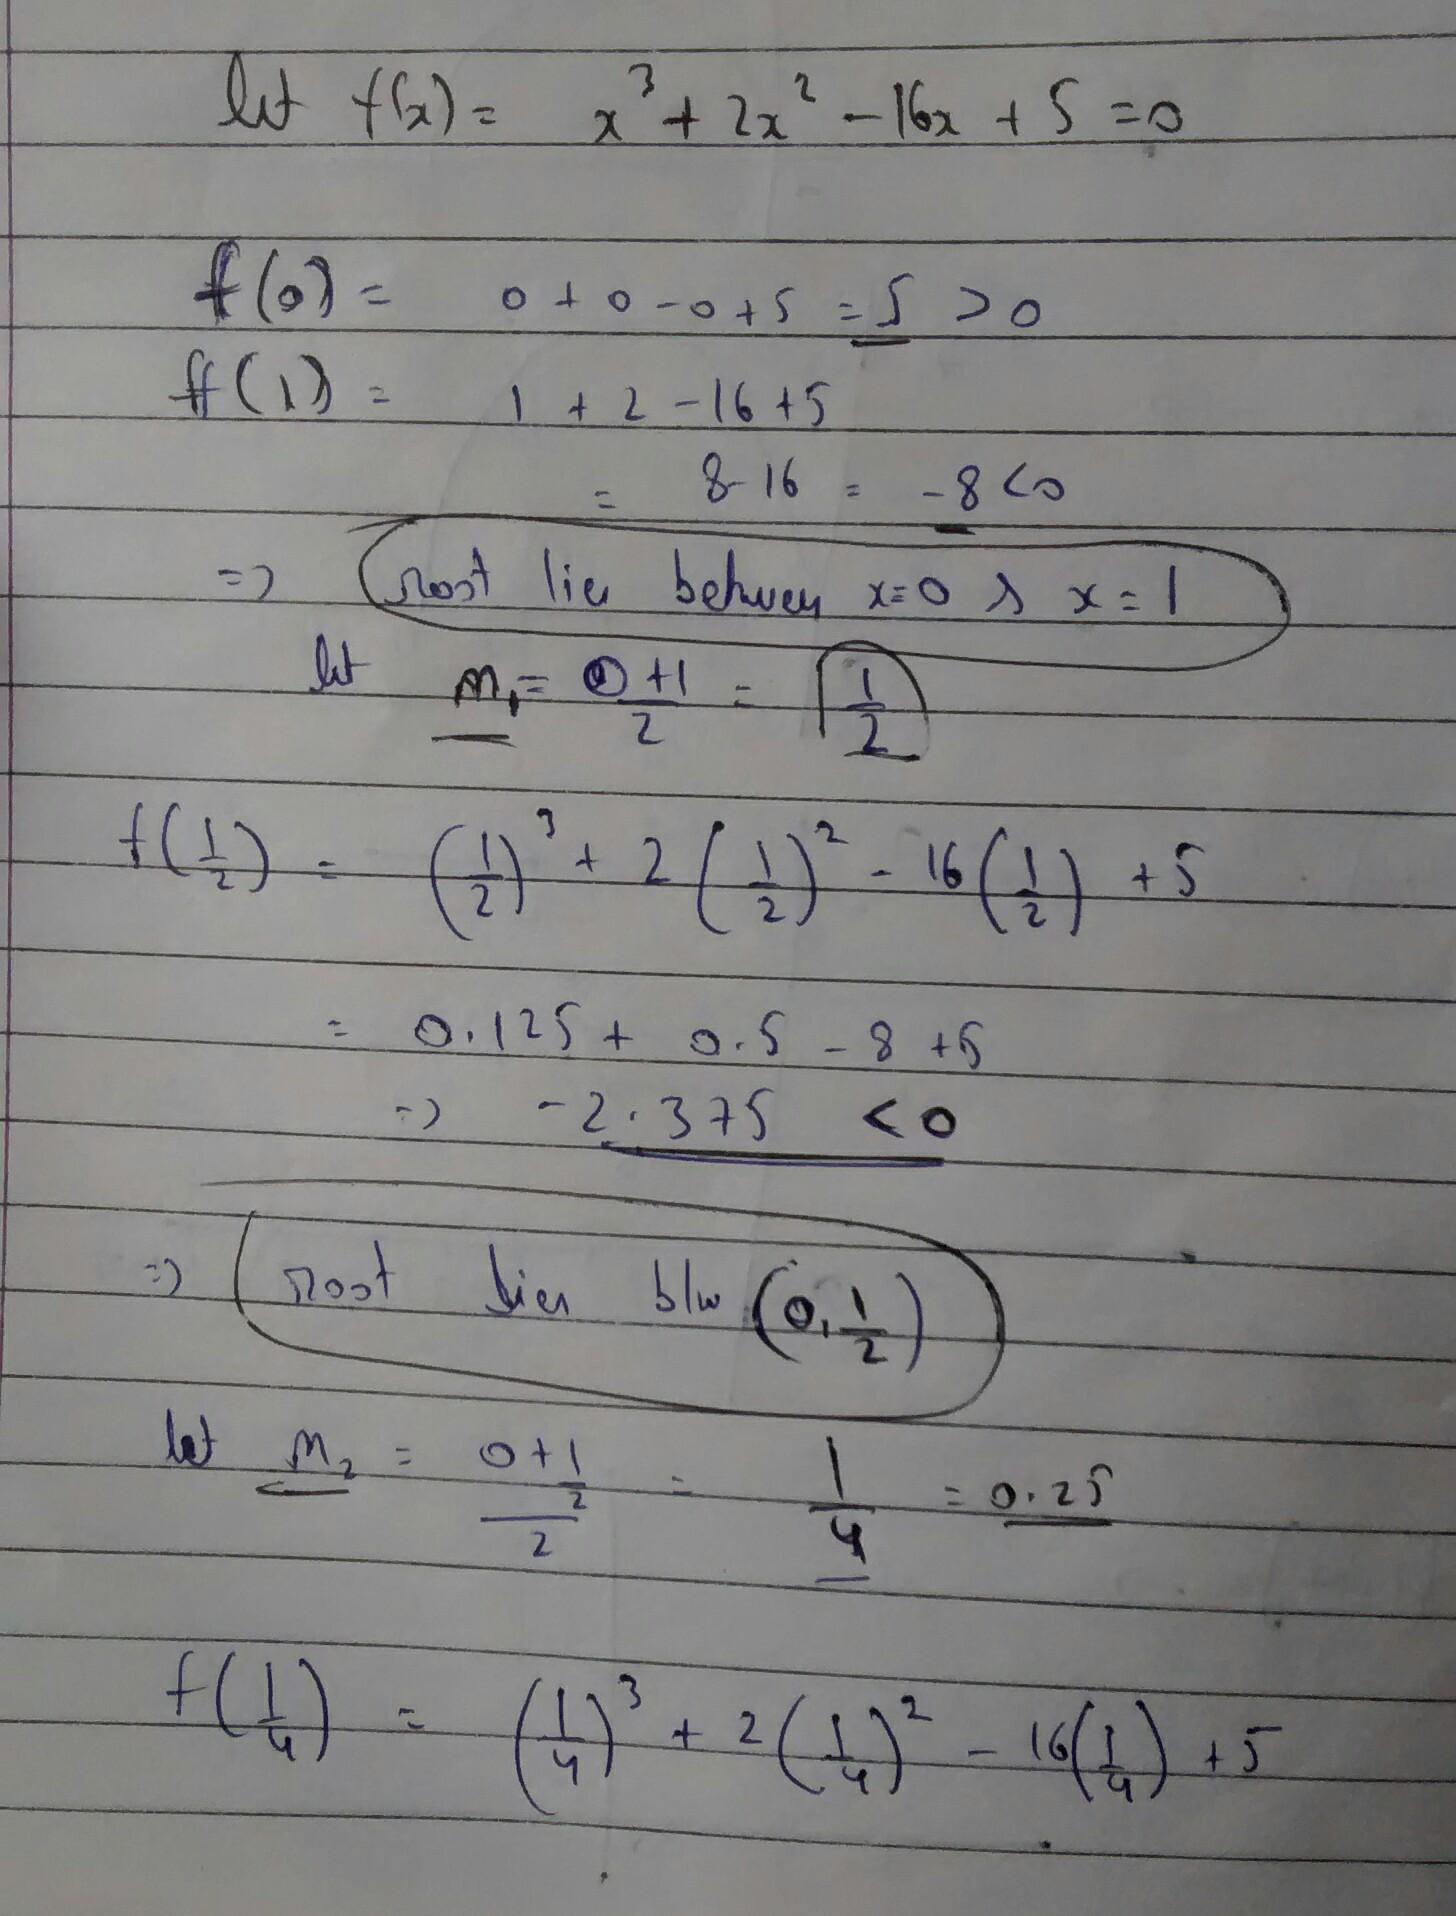 let f(x) = x³ + 2x² - 16x + 5 = 0
f(0) = 0 + 0 - 0 + 5 = 5 > 0
f(1) = 1 + 2 - 16 + 5
= 8 - 16 = -8 < 0
=> root lies between x=0 & x=1
let m₁ = (0+1)/2 = 1/2
f(1/2) = (1/2)³ + 2(1/2)² - 16(1/2) + 5
= 0.125 + 0.5 - 8 + 5
=> -2.375 < 0
=> root lies b/w (0, 1/2)
let m₂ = (0+1/2)/2 = 1/4 = 0.25
f(1/4) = (1/4)³ + 2(1/4)² - 16(1/4) + 5